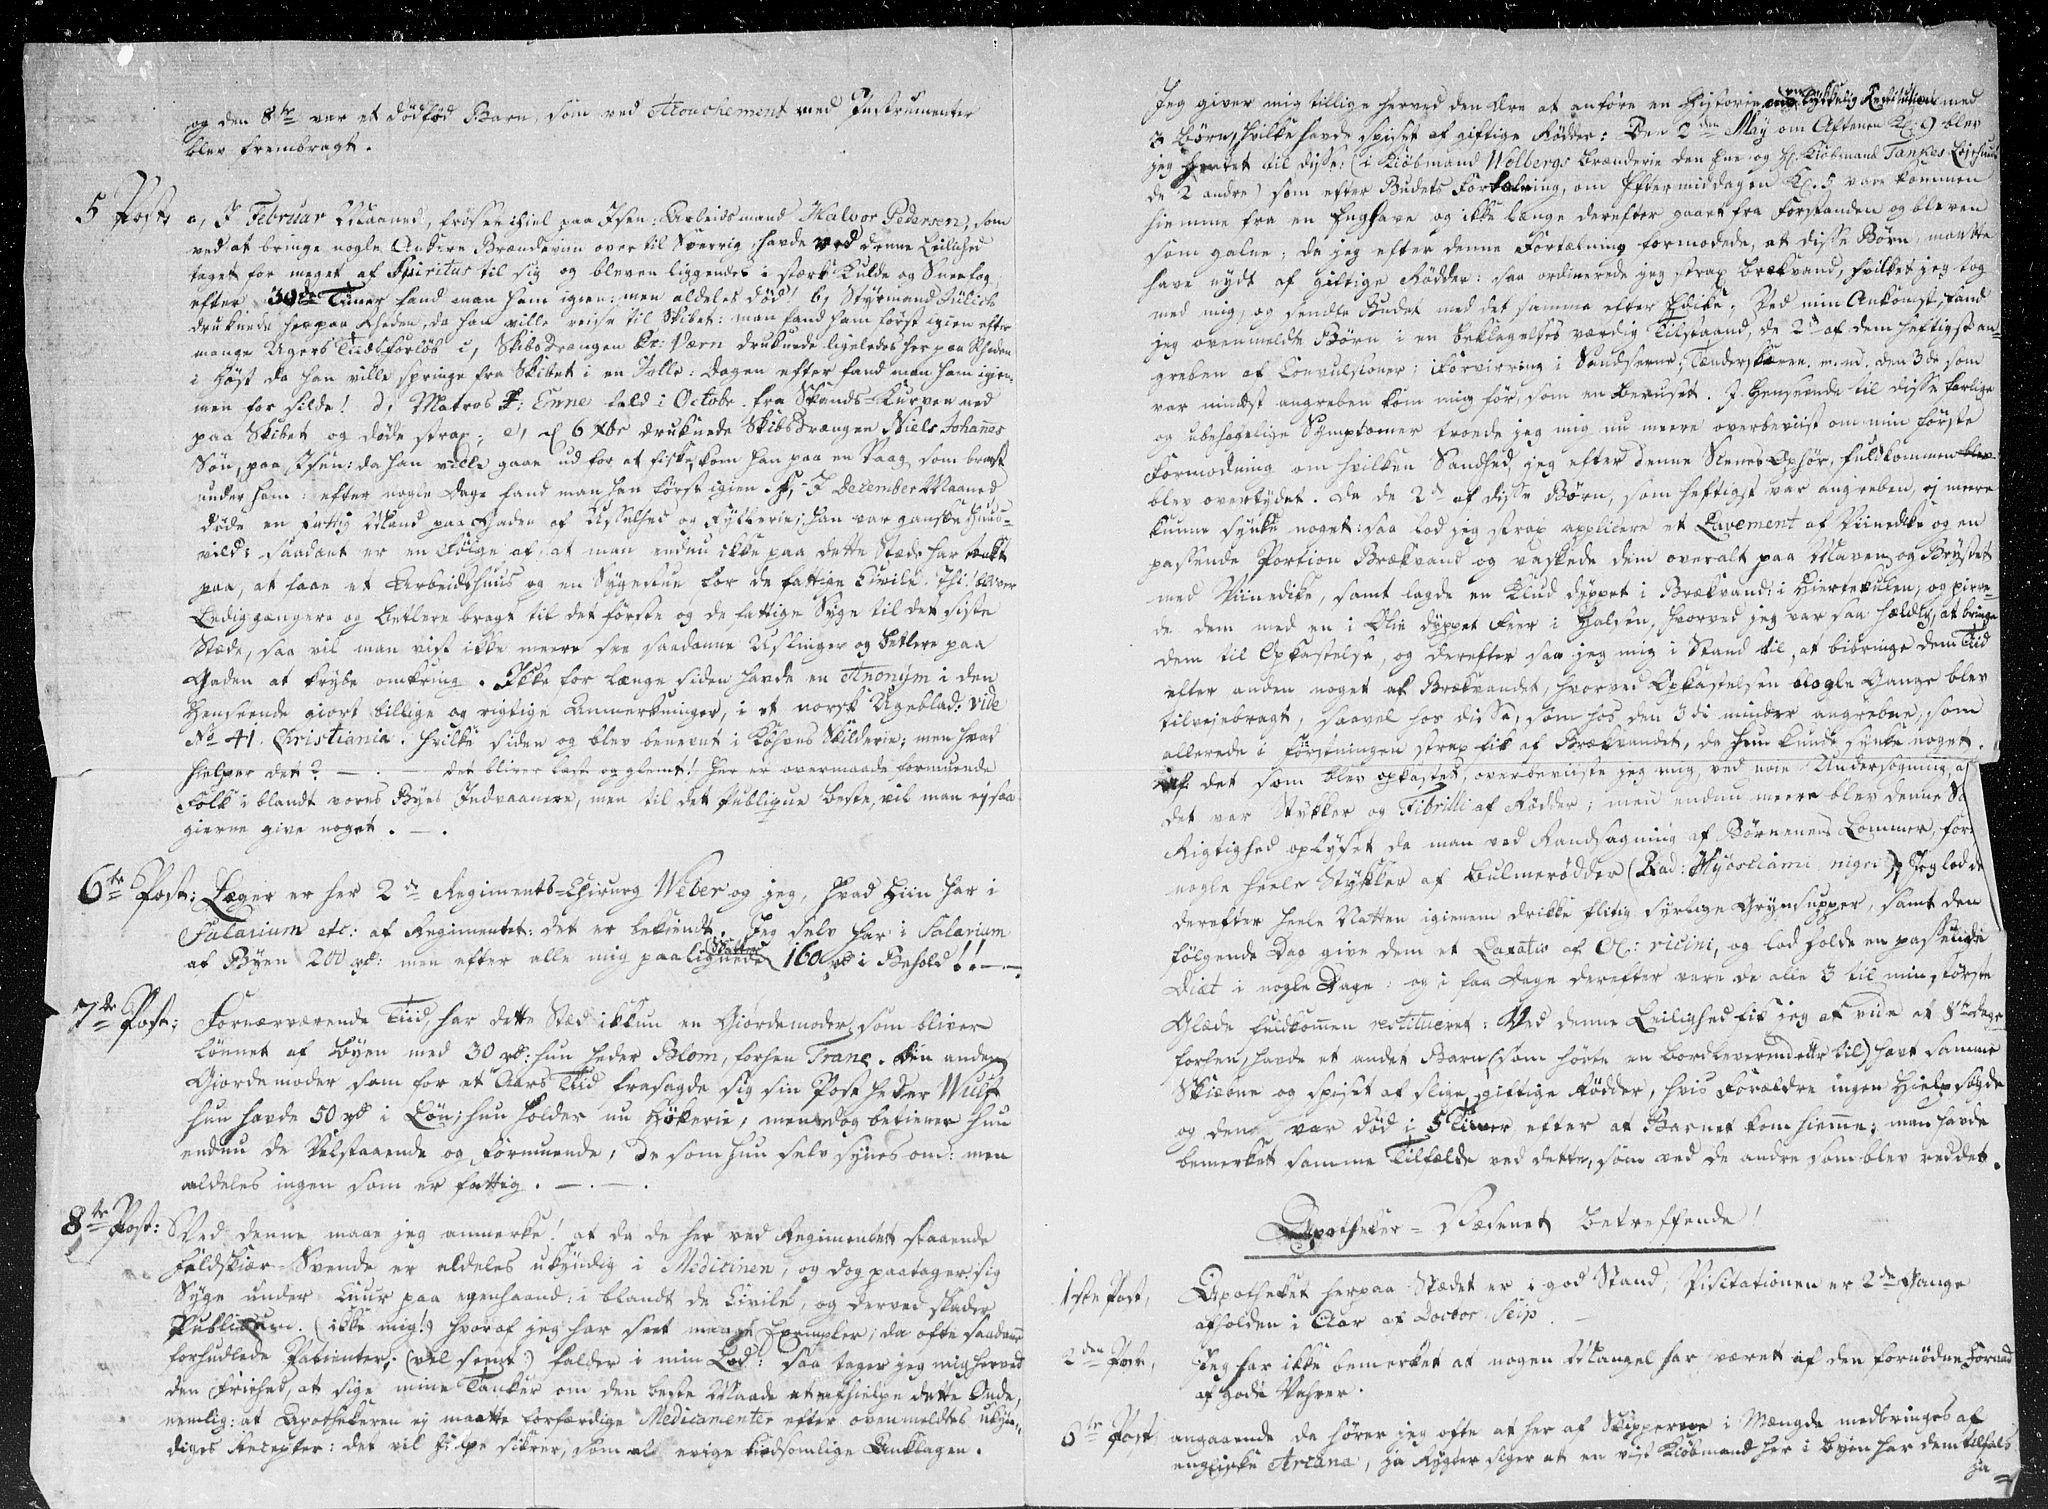 og den 8de var et dödfød Barn, som ved Accouchement med Instrumenter
blev frembragt.
5 Post, a, I Februar Maaned, frösse ihiel paa Isen: Arbeidsmand Halvor Pedersen, som
ved at bringe nogle Ankere Brændeviin over til Sverrig, havde ved denne Leilighed
taget for meget af Spiritus til sig og bleven liggendes i stærk Kulde og Sneefog,
efter 30de Timer fand man ham igien: men aldeles död! b, Styrmand Jülich
druknede her paa Rheden, da han ville reise til Skibet: man fand ham först igien efter
mange Ugers Tiids forløb c, Skibsdrengen Er: Værn druknede ligeledes her paa Rheden
i Høst da han ville springe fra Skibet i en Jolle: Dagen efter fand man ham igien,
men for silde! d, Matros F: Enne fald i Octobr. fra Skands-Kurven ned
paa Skibet og døde strax; e, d 6 Xbr druknede Skibsdrengen Niels Johannes
Sön, paa Isen: da han ville gaae ud for at fiske, kom han paa en Vaag, som brast
under ham: efter nogle Dage fand man han först igien. f, I December Maaned
døde en fattig Mand paa Gaden af Usselhed og Fylderie; han var ganske Huus-
vild: saadant er en Følge af, at man endnu ikke paa dette Stæd har tænkt
paa, at have et Arbeidshuus og en Sygestue for de fattige Civile. Thi: bliver
Lediggængere og Betlere bragt til det förste og de fattige Syge til det sidste
Stæde, saa vil man vist ikke meere see saadanne Uslinger og Betlere paa
Gaden at krybe omkring. Ikke for længe siden havde en Anonÿm i den
Henseende giort billige og rigtige Anmerkninger, i et norsk Ugeblad: vide
No 41. Christiania. hvilke siden og blev benevnt i Køhvns Skilderie; men hvad
hielper det? — . — det bliver læst og glemt! her er overmaade formuende
Folk i blandt vores Byes Indvaanere, men til det Publique beste, vil man ej saa
gierne give noget. — .
6te Post: Læger er her 2de Regiments-Chirurg Weber og jeg, hvad Hiin har i
Salarium etc: af Regimentet: det er bekiendt. Jeg selv har i Salarium
af Byen 200 rd: men efter alle mig paalignede Skatter 160 rd i Behold!! — —
7de Post: Fornærværende Tiid, har dette Stæd ikkun en Giordemoder, som bliver
lønnet af Byen med 30 rd: hun heder Blom, forhen Trane. Den anden
Giordemoder som for et Aars Tiid frasagde sig sin Post heder Wulf
hun havde 50 rd i Løn; hun holder nu Høkerie, men dog betiener hun
endnu de Velstaaende og Formuende, de som hun selv synes om: men
aldeles ingen som er fattig. — . — .
8de Post: Ved denne maae jeg anmerke! at da de her ved Regimentet staaende
Feldskiær-Svende er aldeles ukyndig i Medicinen, og dog paatager sig
Syge under Cuur paa egenhaand: i blandt de Civile, og derved skader
Publicum. (ikke mig!) hvoraf jeg har seet mange Exempler; da ofte saadanne
forhudlede Patienter, (vel seent:) falder i min Lod: saa tager jeg mig herved
den Friehed, at sige mine Tanker om den beste Maade at afhielpe dette Onde,
nemlig: at Apothekeren ej maatte forfærdige Medicamenter efter ovenmeldtes ukyn-
diges Recepter: det vil hielpe sikrer, som all evige kiedsomlige Anklagen.
Jeg giver mig tillige herved den Ære at anføre en Historie om lykkelig Restitution med
3 Børn, hvilke havde spiset af giftige Rødder: Den 2den May om Aftenen Kl: 9 blev
jeg hentet til disse: (i Kiøbmand Wolbergs Brænderie den Ene og Hr. Kiøbmand Tankes Leiehuus
de 2 andre) som efter Budets Fortælning, om Eftermiddagen Kl. 5 vare kommen
hiemme fra en Enghave og ikke længe derefter gaaet fra Forstanden og bleven
som galne; da jeg efter denne Fortælning formodede, at disse Børn, maatte
have nydt af giftige Rødder: saa ordinerede jeg strax Brækvand, hvilket jeg tog
med mig, og sendte Budet med det samme efter Edike. Ved min Ankomst, fand
jeg ovenmeldte Børn i en beklagelses værdig Tilstand, de 2de af dem heftigst an-
greben af Convulsioner; Forvirring i Sandserne; Tænderskæren m.m. den 3de som
var mindst angreben kom mig før, som en beruset. I Henseende til disse farlige
og ubehagelige Symptomer troede jeg mig nu meere overbeviist om min første
Formodning om hvilken Sandhed, jeg efter denne Scenes Ophør, fuldkommen blev
blev overtydet. Da de 2de af disse Børn, som heftigst var angreben, ej meere
kunne synke noget: saa lod jeg strax applicere et Lavement af Viinedike og en
passende Portion Brækvand og vaskede dem overalt paa Maven og Brystet
med Viinedike, samt lagde en Klud dyppet i Brækvand: i Hiertekulen; og pirre-
de dem med en i Olie dyppet Feer i Halsen, hvorved jeg var saa heldig, at bringe
dem til Opkastelse, og derefter saa jeg mig i Stand til, at bibringe dem Tiid
efter anden noget af Brækvandet, hvorved Opkastelsen nogle Gange blev
tilvejebragt, saavel hos disse, som hos den 3di minder angrebne, som
allerede i Førstningen strax fik af Brækvandet, da hun kunde synke noget.
af det som blev opkastet, overbeviiste jeg mig, ved nøie Undersøgning, at
det var Stykker og Fibrilli af Rødder; men endnu meere blev denne
Rigtighed oplyset da man ved Randsagning af Børnenens Lommer, for
nogle heele Stykker af Bulmerødder (Rad: Hyosciami nigri); Jeg lod de
derefter heele Natten igienem drikke flitig syrlige Grynsupper, samt den
følgende Dag give dem et Laxativ af Ol: ricini, og lod holde en passende
Diæt i nogle Dage: og i faa Dage derefter vare de alle 3 til min største
Glæde fuldkommen restitueret: Ved denne Leilighed fik jeg at vide at 8te dage
forhen, havde et andet Barn (som hørte en Bordleverendeur til) havt samme
Skiæbne og spiset af slige giftige Rødder, hvis Forældre ingen Hielp søgde
og den var död i 5 Timer efter at Barnet kom hiemme; man havde
bemerket samme Tilfælde ved dette, som ved de andre som blev reddet.
Apotheker-Væsenet betreffende!
1ste Post, Apotheket herpaa Stædet er i god Stand, Visitationen er 2de Gange
afholden i Aar af Doctor Seip. —
2den Post, Jeg har ikke bemerket at nogen Mangel har været af den fornødne Forraad
af gode Vahrer.
3de Post angaaende da hører jeg ofte at her af Skipperne i Mængde medbringes af
engelske Arcana, ja Rygter siger at en vis Kiøbmand her i byen har dem tilfals
ja